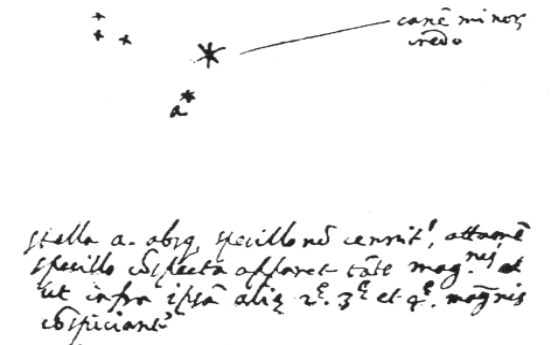 canē minor
credo
a
stella a. absq. specillo nō cernit', attamē
specillo cōspecta apparet tāte mag.nis et
ut infra ipsā aliq 2ę. 3ę et 4ę. magnis
cōspiciant'